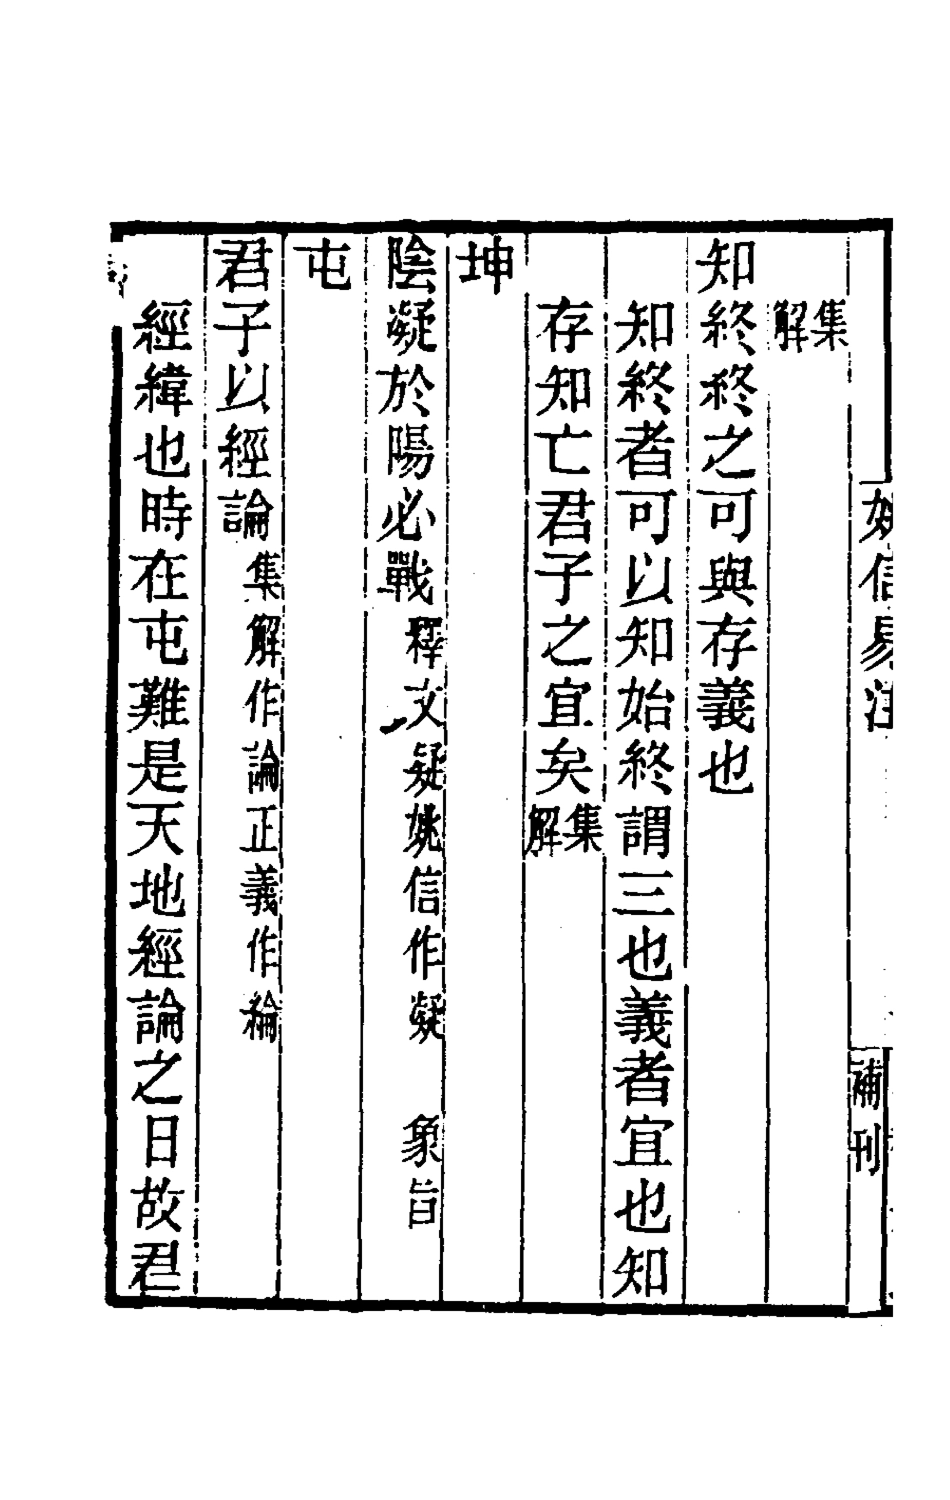 姚信易注
補刊
集解
知終終之可與存義也
知終者可以知始終謂三也義者宜也知
存知亡君子之宜矣集解
坤
陰凝於陽必戰釋文疑姚信作凝 象旨
屯
君子以經論集解作論正義作綸
經緯也時在屯難是天地經論之日故君